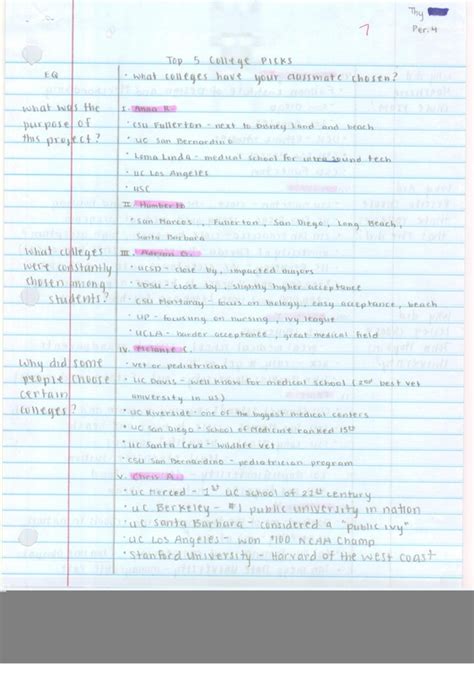 Thy
7
Per. 4
Top 5 College Picks
EQ
• What colleges have your classmate chosen?
What was the purpose of this project?
I. Anna R.
• CSU Fullerton - next to Disney land and beach
• UC San Bernardino
• Loma Linda - medical school for ultra sound tech
• UC Los Angeles
• USC
II. Humberto
• San Marcos, Fullerton, San Diego, Long Beach,
Santa Barbara
What colleges were constantly chosen among students?
III. D.
• UCSD - close by, impacted majors
• SDSU - close by, slightly higher acceptance
• CSU Monteray - focus on biology, easy acceptance, beach
• UP - focusing on nursing, ivy league
• UCLA - harder acceptance, great medical field
Why did some people choose certain colleges?
IV. Melanie C.
• vet or pediatrician
• UC Davis - well known for medical school (2nd best vet
university in US)
• UC Riverside - one of the biggest medical centers
• UC San Diego - School of Medicine ranked 15th
• UC Santa Cruz - wildlife vet
• CSU San Bernardino - pediatrician program
V. Chris A.
• UC Merced - 1st UC school of 21st century
• UC Berkeley - #1 public university in nation
• UC Santa Barbara - considered a "public ivy"
• UC Los Angeles - won #100 NCAA Champ
• Stanford University - Harvard of the west coast